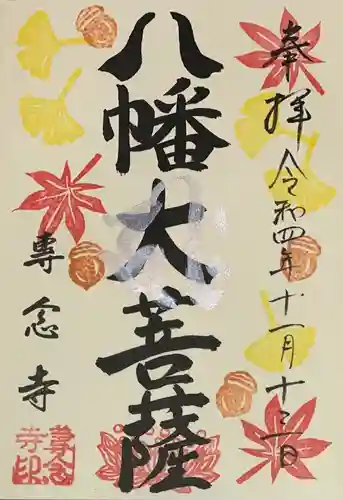 奉拝 令和四年十一月十三日
八幡大菩薩
專念寺
專念
寺印